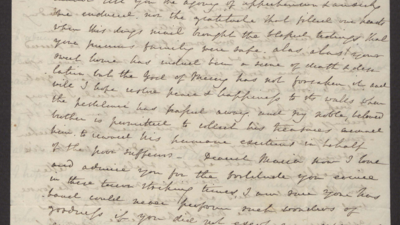 tell you the agony of apprehension & anxiety
we endured nor the gratitude that filled our hearts
when this day's mail brought the blessed tidings that
your precious family were safe, alas, alas! your
sweet home has indeed been a scene of death & deso
lation but the God of Mercy has not forsaken it and
will I hope restore peace & happiness to its walls when
the pestilence has passed away and my noble, beloved
brother is permitted to collect his treasures around
him to reward his humane exertions in behalf
of the poor sufferers. Dearest Maria how I love
and admire you for the fortitude you evince
in these heart shocking times, I am sure your
hand could never perform such wonders of
goodness if you did not